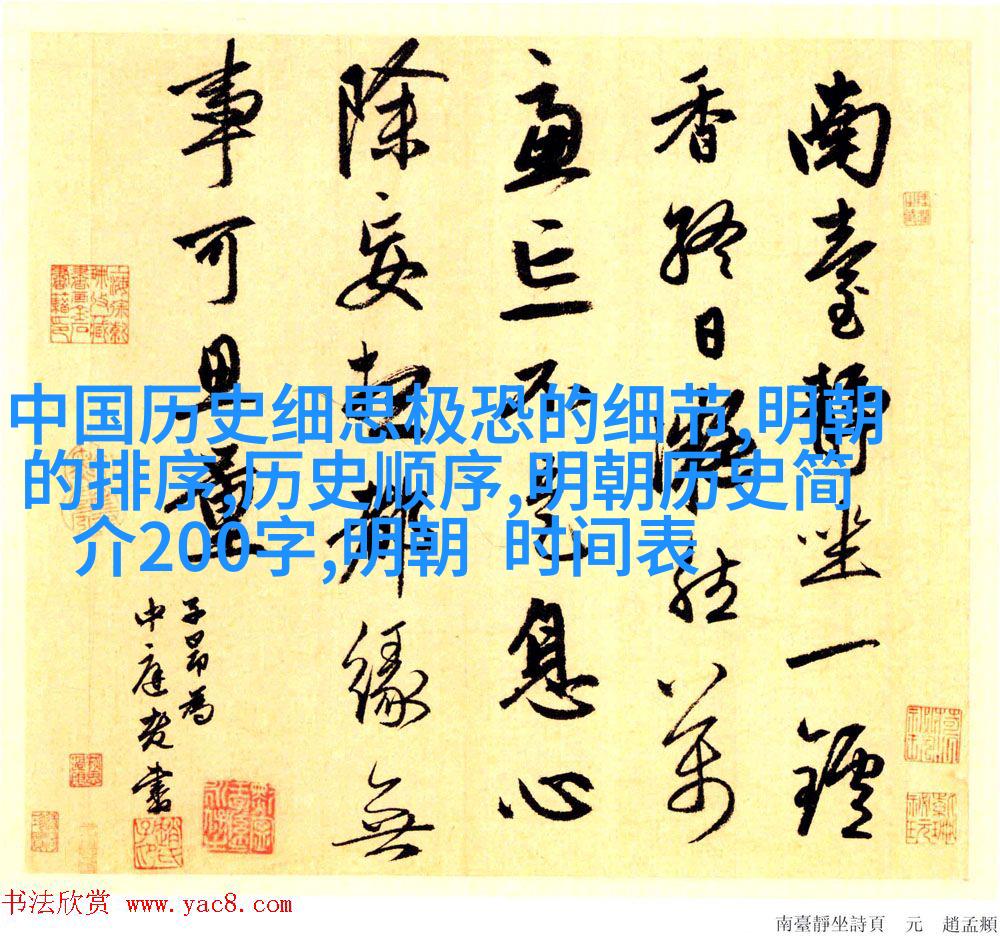 南臺靜坐一鑪
香終日凝然萬
慮亡不是息心
除妄想都緣無
事可思量
子昂為
中庭老書
中国历史细思极恐的细节,明朝
的排序,历史顺序,明朝历史简
介200字,明朝 时间表
书法欣赏 www.yac8.com
南臺靜坐詩頁 元 趙孟頫